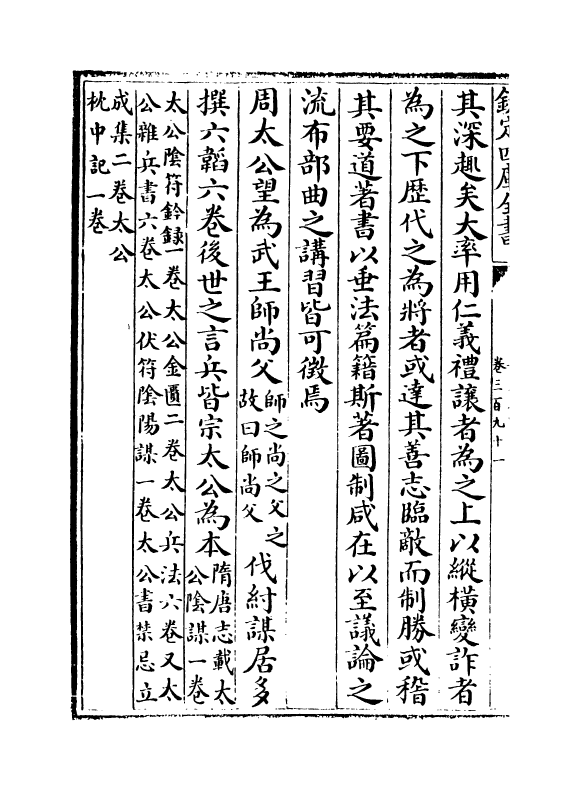 欽定四庫全書
卷三百九十一
其深趣矣大率用仁義禮讓者為之上以縱橫變詐者
為之下歷代之為將者或達其善志臨敵而制勝或稽
其要道著書以垂法篇籍斯著圖制咸在以至議論之
流布部曲之講習皆可徵焉
周太公望為武王師尚父師之尚之父之故曰師尚父伐紂謀居多
撰六韜六卷後世之言兵皆宗太公為本隋唐志載太公陰謀一卷
太公陰符鈐錄一卷太公金匱二卷太公兵法六卷又太
公雜兵書六卷太公伏符陰陽謀一卷太公書禁忌立
成集二卷太公
枕中記一卷